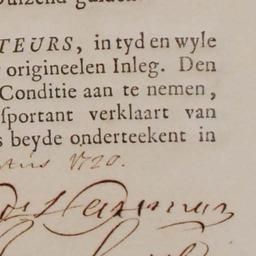 uizend gulden
TEURS, in tyd en wyle
origineelen Inleg. Den
Conditie aan te nemen,
sportant verklaart van
s beyde onderteekent in
1720.